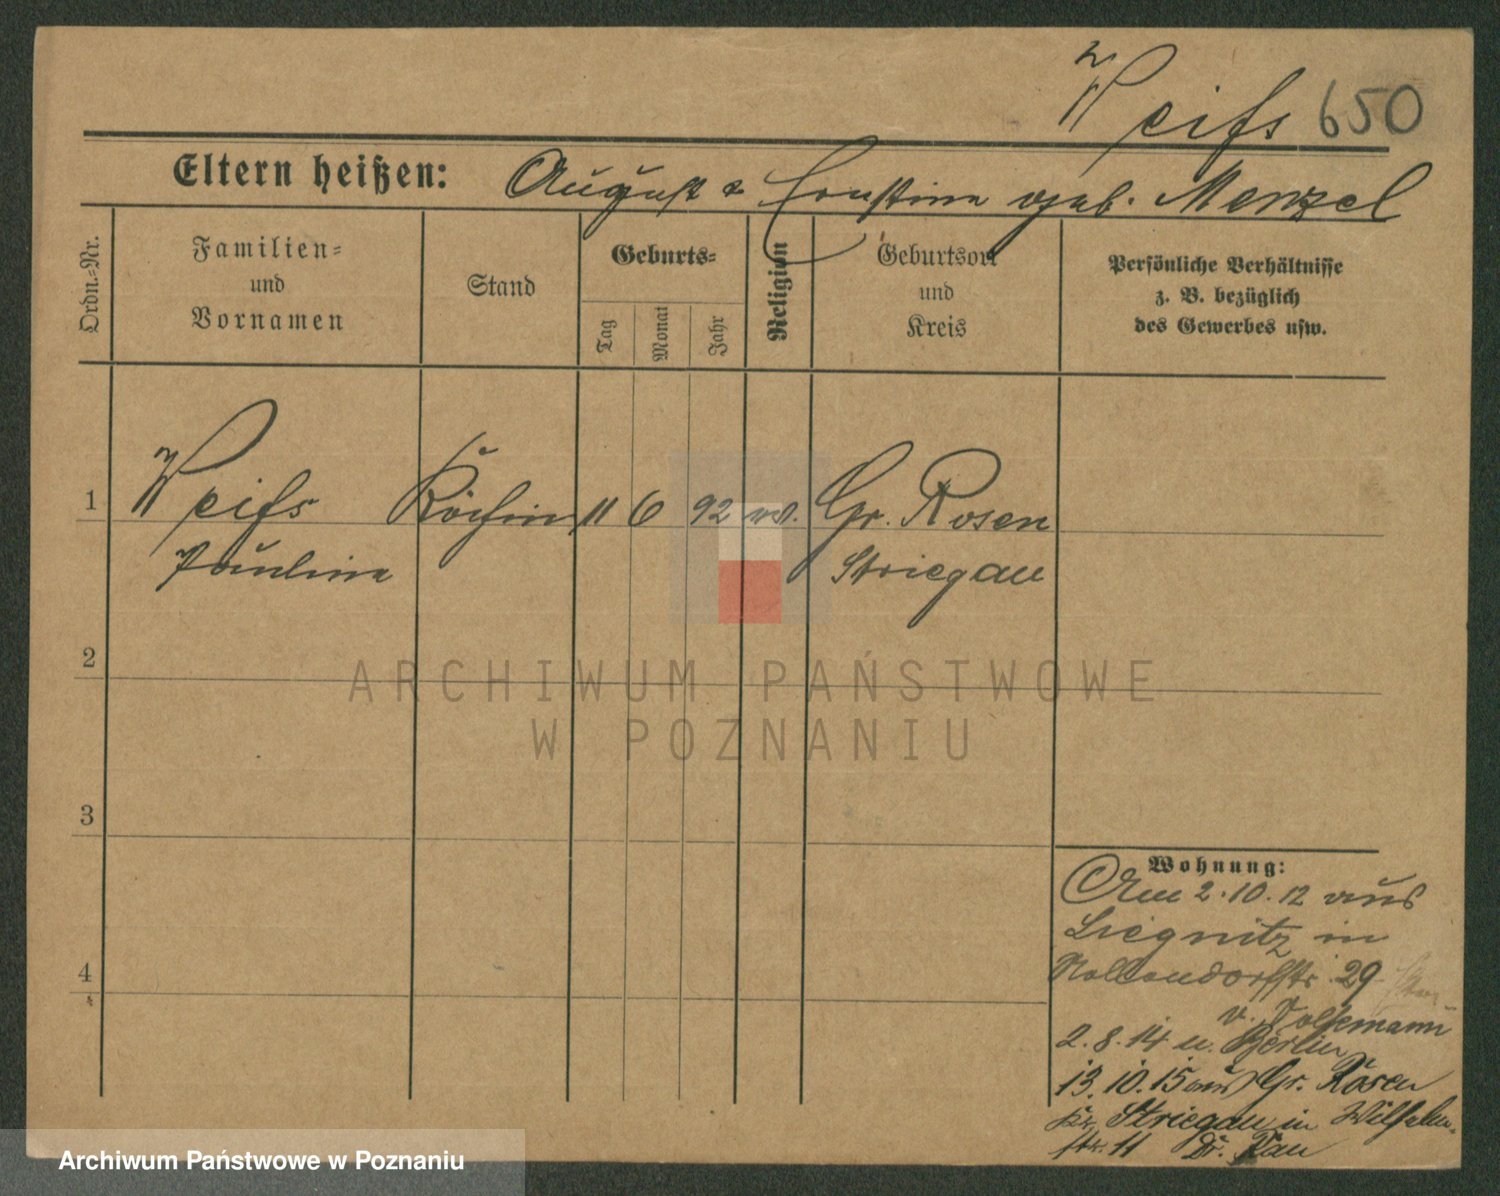 Weiß 650
Eltern heißen: August & Ernstine geb. Menzel
Ordn.-Nr.
Familien-
und
Vornamen
Stand
Geburts-
Tag
Monat
Jahr
Religion
Geburtsort
und
Kreis
Persönliche Verhältnisse
z. B. bezüglich
des Gewerbes usw.
1
Weiß Köchin 11 6 92 ev. Gr. Rosen
Pauline Striegau
2
3
4
Wohnung:
Am 2.10.12 aus
Liegnitz in
Nollendorffstr. 29
v.
2.8.14 n. Berlin
13.10.15 aus Gr. Rosen
Kr. Striegau in Wilhelm-
str. 11 Dr. Rau
ARCHIWUM PAŃSTWOWE
W POZNANIU
Archiwum Państwowe w Poznaniu